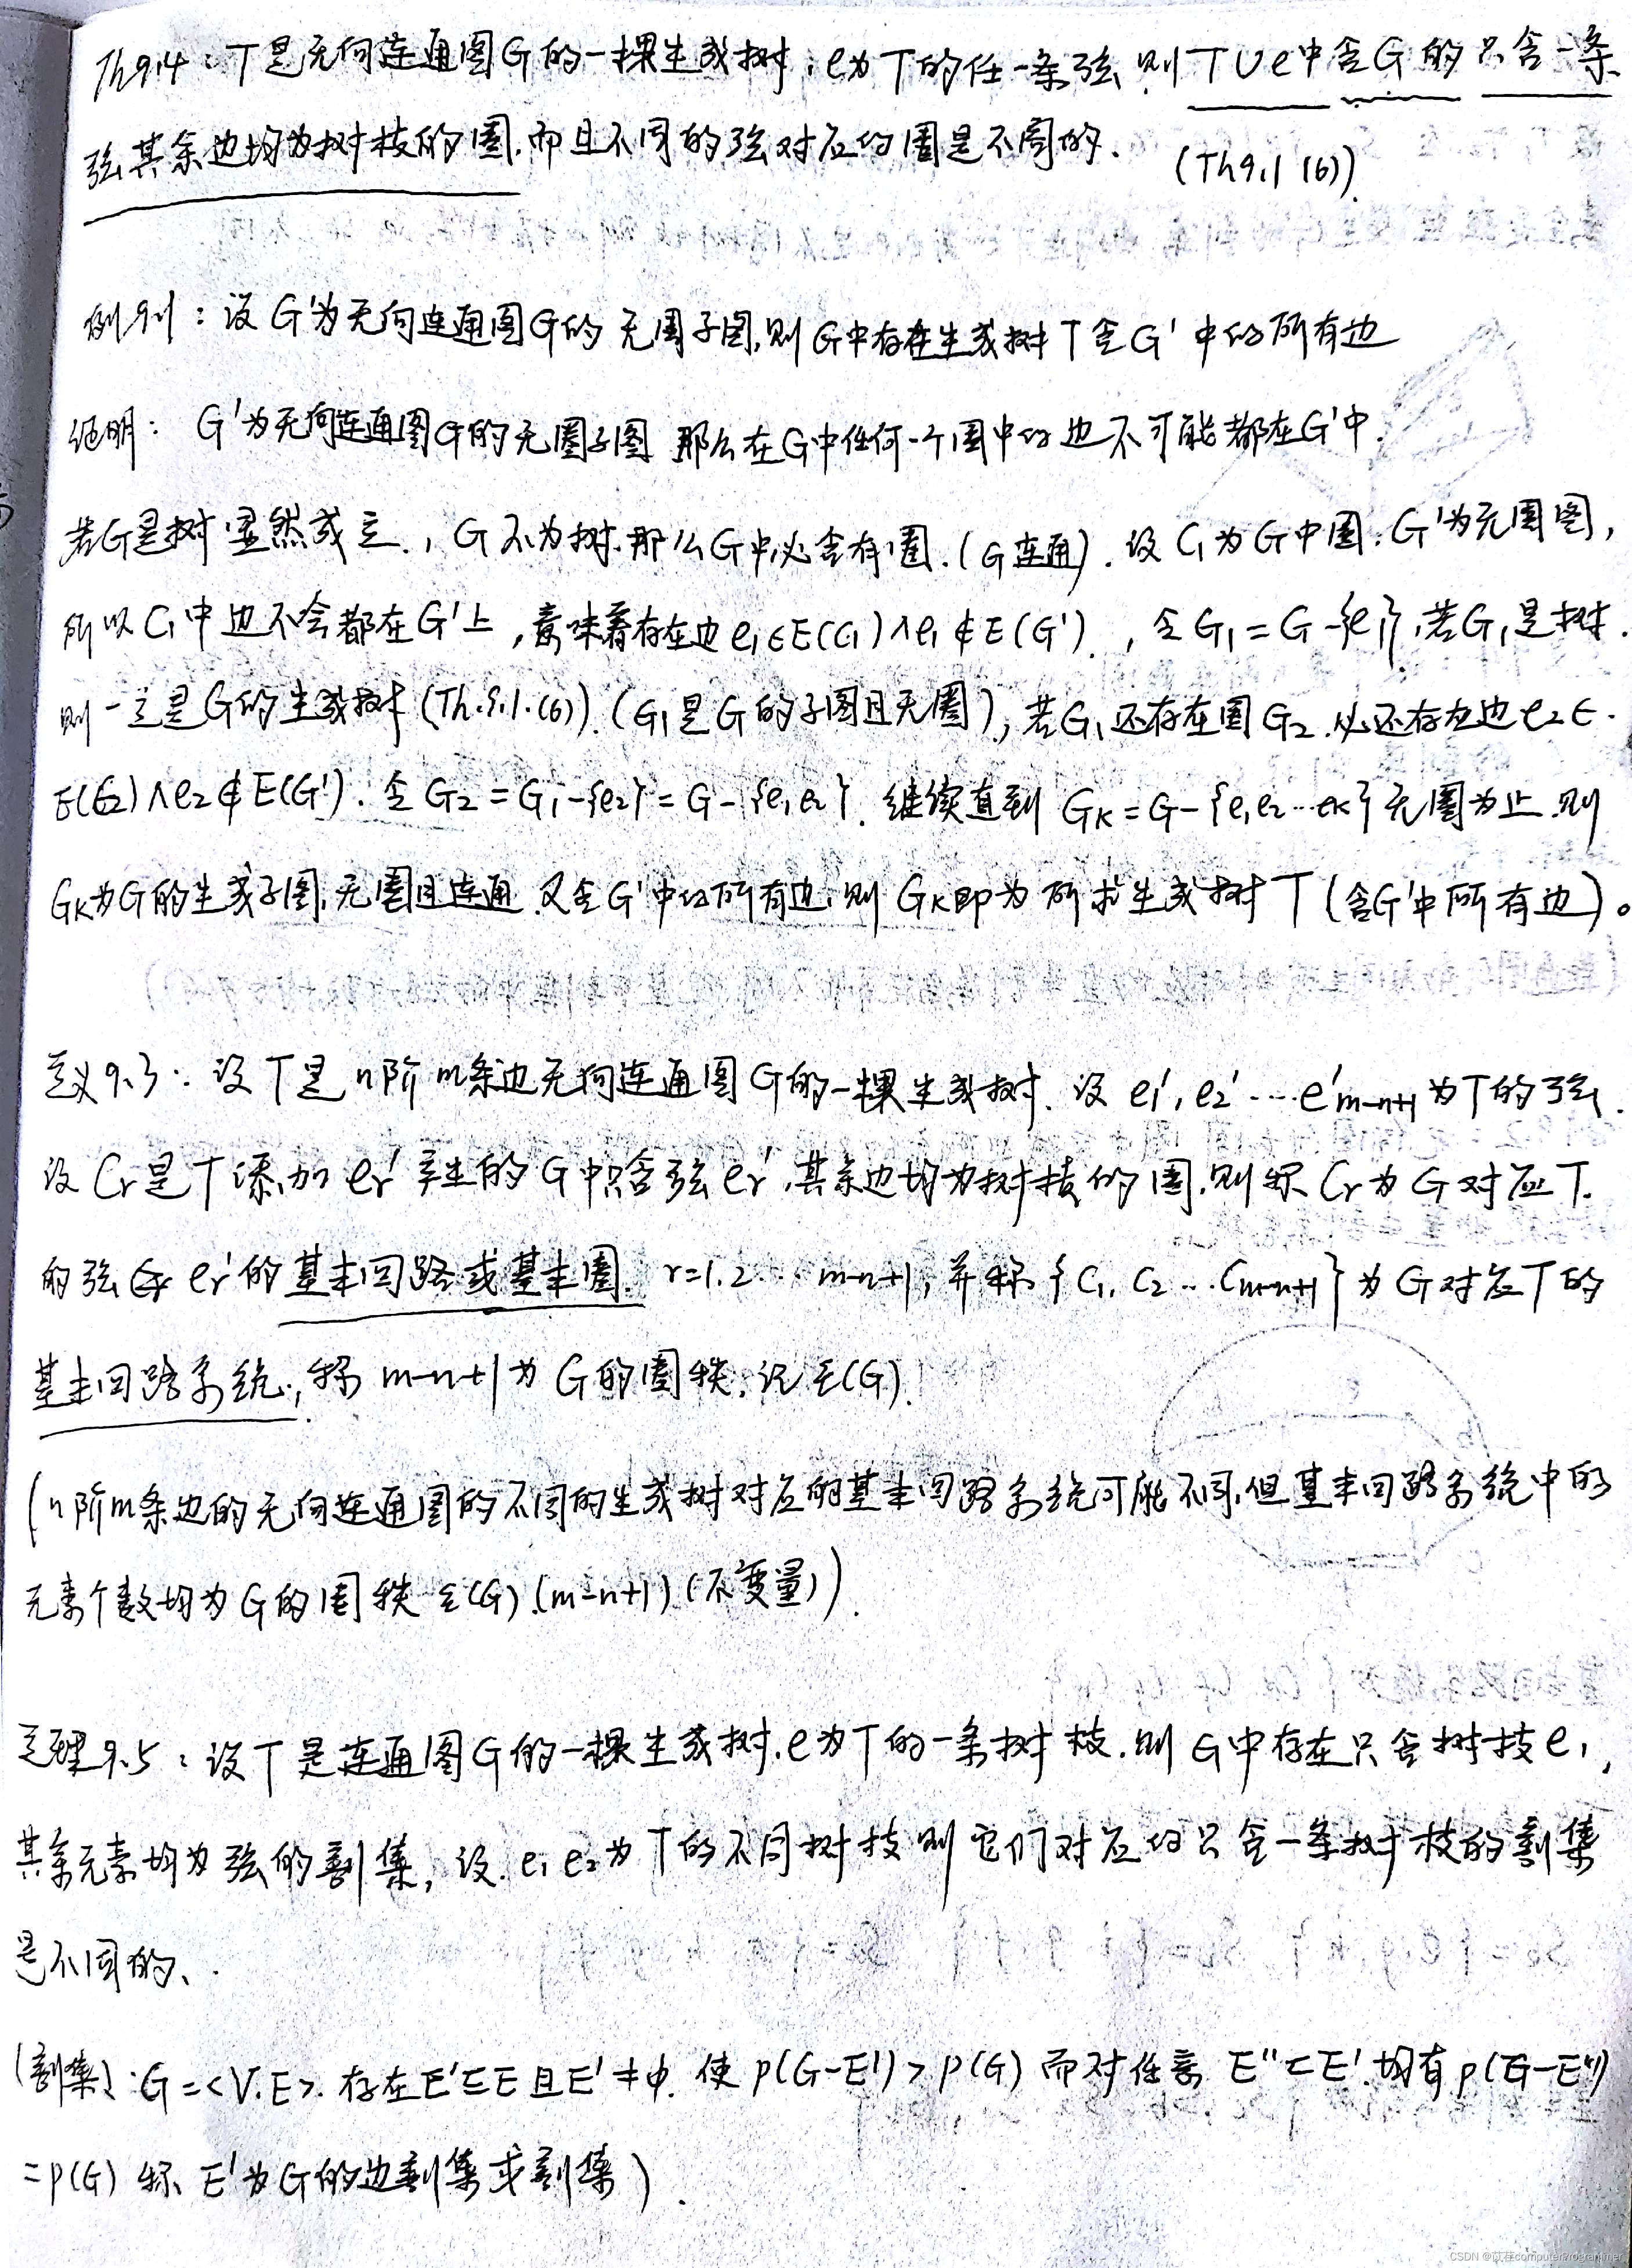 Th9.4：T是无向连通图G的一棵生成树，e为T的任一条弦，则T∪e中含G的只含一条
弦其余边均为树枝的圈，而且不同的弦对应的圈是不同的．
(Th9.1 (6))
例9.1：设G'为无向连通图G的无圈子图，则G中存在生成树T含G'中的所有边
证明：G'为无向连通图G的无圈子图 那么在G中任何一个圈中的边不可能都在G'中．
若G是树显然成立．，G不为树．那么G中必含有圈．(G连通)．设C₁为G中圈．G'为无圈图，
所以C₁中边不会都在G'上，意味着存在边e₁∈E(C₁)∧e₁∉E(G')．，令G₁=G-{e₁}，若G₁是树．
则一定是G的生成树(Th.9.1.(6))．(G₁是G的子图且无圈)，若G₁还存在圈G₂．必还存在边e₂∈
E(G₂)∧e₂∉E(G')．令G₂=G₁-{e₂}=G-{e₁e₂}．继续直到 Gk=G-{e₁e₂…ek}无圈为止．则
Gk为G的生成子图，无圈且连通．又含G'中的所有边，则Gk即为所求生成树T(含G'中所有边)。
定义9.3：设T是n阶m条边无向连通图G的一棵生成树．设e₁',e₂'…e'm-n+1为T的弦．
设Cr是T添加er'产生的G中只含弦er'，其余边均为树枝的圈．则称Cr为G对应T．
的弦er'的基本回路或基本圈．r=1.2…m-n+1，并称{C₁, C₂…Cm-n+1}为G对应T的
基本回路系统，称m-n+1为G的圈秩，记ξ(G)．
(n阶m条边的无向连通图的不同的生成树对应的基本回路系统可能不同，但基本回路系统中的
元素个数均为G的圈秩ξ(G)．(m-n+1)(不变量))．
定理9.5：设T是连通图G的一棵生成树．e为T的一条树枝．则G中存在只含树枝e，
其余元素均为弦的割集，设．e₁e₂为T的不同树枝则它们对应的只含一条树枝的割集
是不同的、．
(割集)：G=<V.E>．存在E'⊆E且E'≠φ．使p(G-E')>p(G)而对任意E''⊂E'．均有p(G-E'')
=p(G)称E'为G的边割集或割集)．
CSDN @苡荏computerProgrammer